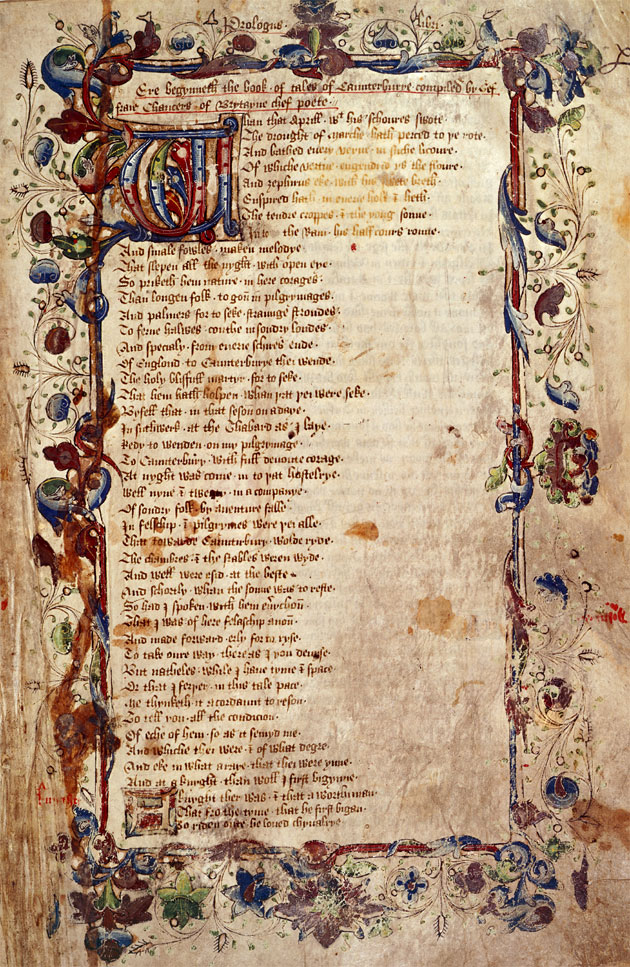 Prologus libri
Here begynneth the book of tales of Caunterburye compiled by Gef
fraie Chaucers of Brytayne chef poete
Whan that Aprill wt his schoures swote
The drought of marche hath perced to þe rote
And bathed every veyne in suche licoure
Of whiche vertue engendrid is the floure
And zephirus eke with his swete breth
Enspired hath in euerie holt & heth
The tendre croppes & the yong sonne
Into the Ram his half cours ronne
And smale fowles maken melodye
That slepen all the nyght with open eye
So priketh hem nature in here corages
Than longen folk to gon in pilgrymages
And palmers for to seke straunge strondes
To ferne halwes couthe in sondry londes
And specialy from euerie schires ende
Of Englond to Caunterburye thei wende
The holy blisfull martir for to seke
That hem hath holpen whan þat þei were seke
Byfell that in that seson on a daye
In suthwerk at the Thabard as I laye
Redy to wenden on my pilgrimage
To Caunterbury with full devoute corage
At nyght was come in to þat hostelrye
Well nyne & twenty in a companye
Of sondry folk by auenture falle
In felschip & pilgrymes were þei alle
That towarde Caunterbury wolde ryde
The chambres & the stables weren wyde
And well were esid at the beste
And schortly whan the sonne was to reste
So had I spoken with hem euerychon
That I was of here felaschip anon
And made forward erly for to ryse
To take oure way there as I you deuyse
But natheles while I haue tyme & space
Or that I ferþer in this tale pace
Me thynketh it acordaunt to reson
To tell you all the condicion
Of eche of hem so as it semyd me
And whiche thei were & of what degre
And eke in what araye that thei were ynne
And at a knyght than woll I first bigynne
A knyght ther was & that a worthi man
That fro the tyme that he first bigan
To riden oute he loued chyualrye